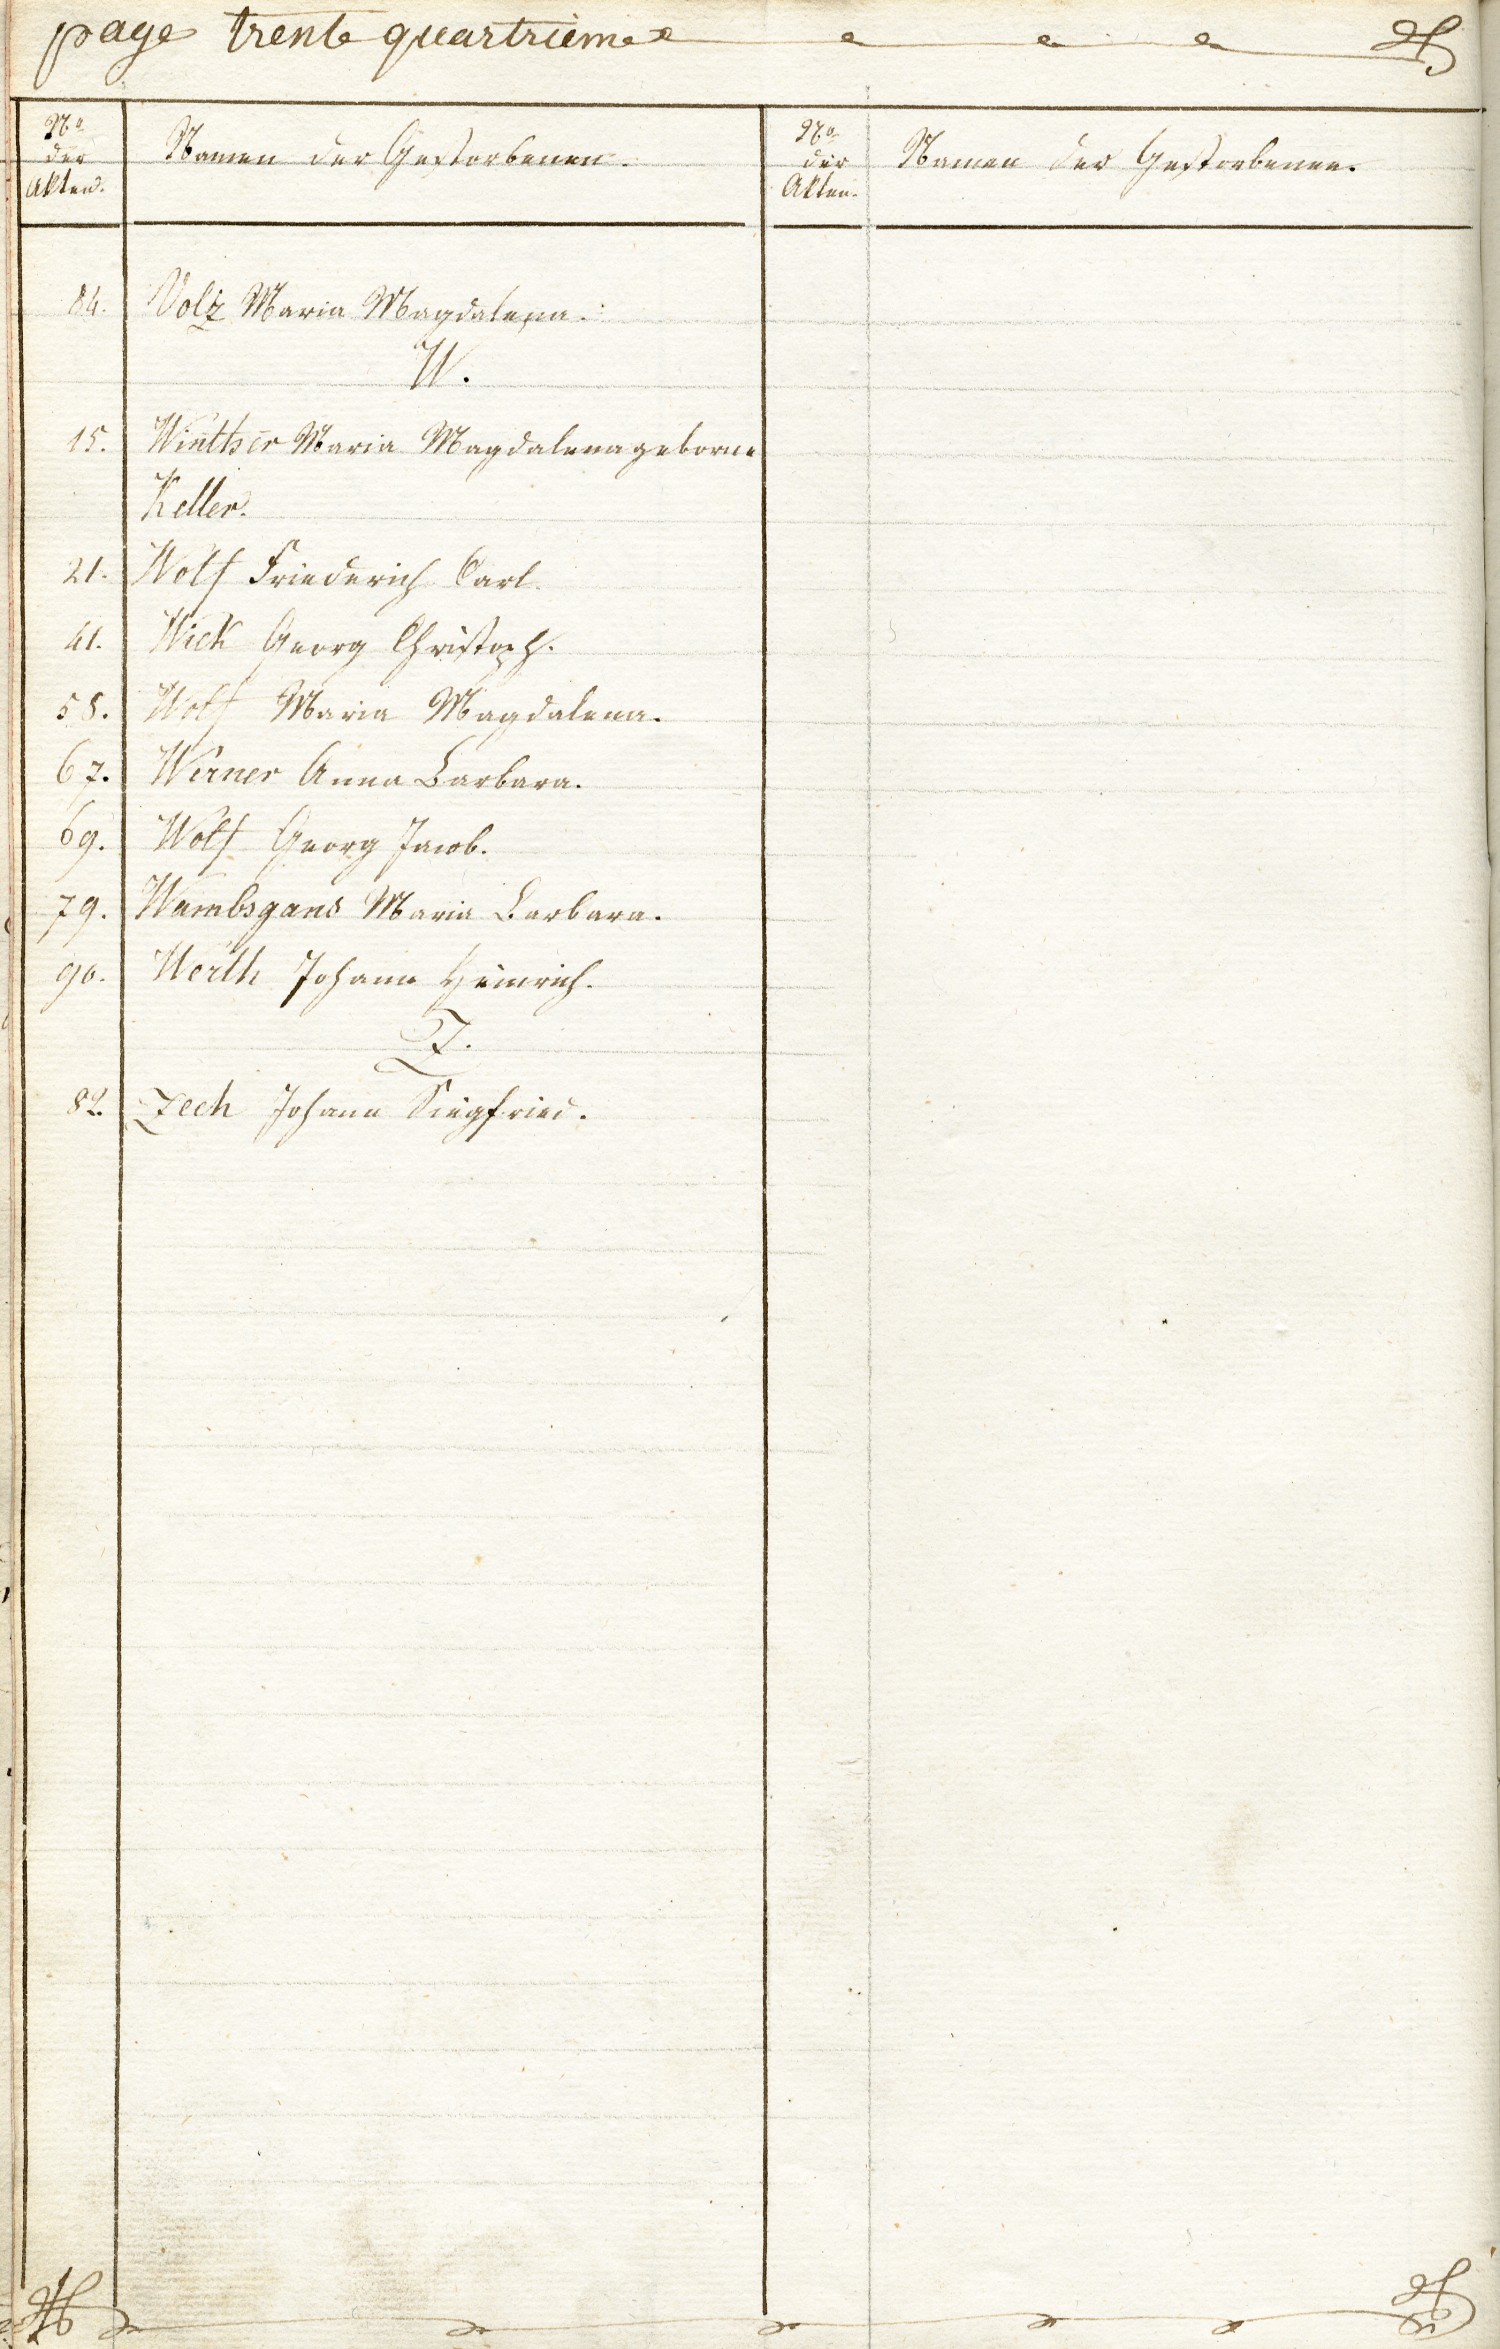 page trente quartrieme
No
der
Akten.
Namen der Gestorbenen.
No
der
Akten.
Namen der Gestorbenen.
84. Volz Maria Magdalena.
W.
15. Maria Magdalena geborne
Keller.
21. Wolf Friederich Carl.
41. Wick Georg Christoph.
58. Wolf Maria Magdalena.
67. Werner Anna Barbara.
69. Wolf Georg Jacob.
79. Wambsgans Maria Barbara.
90. Werth Johann Heinrich.
Z.
82. Zech Johann Siegfried.